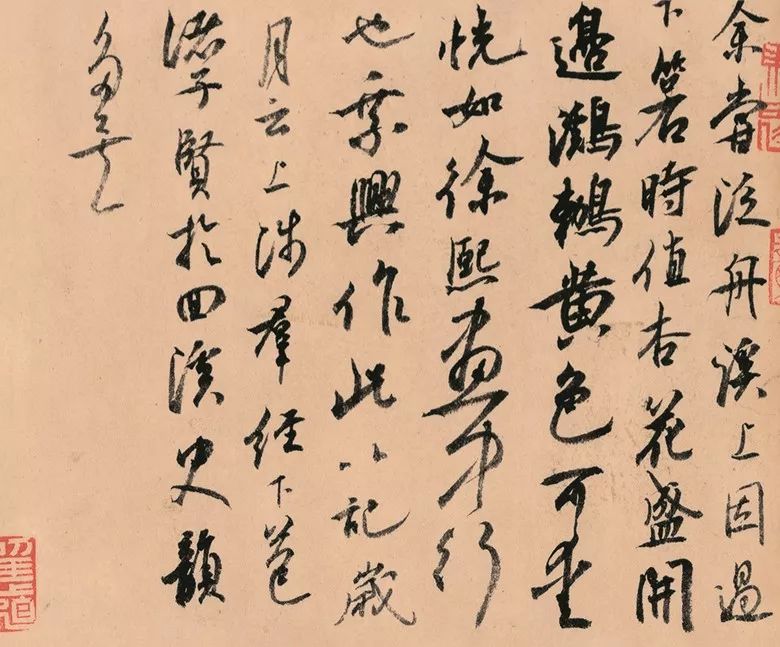 余嘗泛舟溪上因過
下箬時值杏花盛開
邊鸂鶒黃色可愛
恍如徐熙畫中行
也乘興作此以記歲
月云上涉羣經下苞
諸子賢於回溪史韻